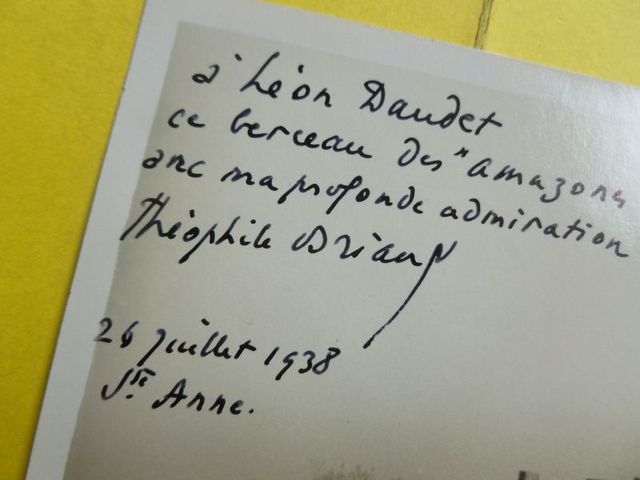 à Léon Daudet
ce berceau des "amazones
avec ma profonde admiration
Théophile Briant
26 juillet 1938
Ste Anne.